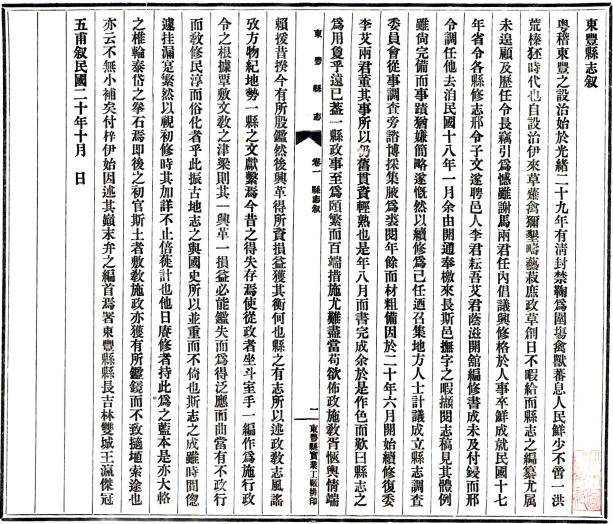 東豐縣志叙
粵稽東豐之設治始於光緒二十九年有清封禁鞠為圍場禽獸蕃息人民鮮少不啻一洪
荒榛狉時代也自設治伊來草薙禽獮墾疇藝菽庶政草創日不暇給而縣志之編纂尤属
未遑顧及歷任令長藕引為憾雖謝馬兩君任內倡議興修格於人事卒鮮成就民國十七
年省令各縣修志邢令子文遂聘邑人李君耘吾艾君蔭滋開舘編修書成未及付鋟而邢
令調任他去洎民國十八年一月余由開通奉檄來長斯邑撫字之暇擷閱志稿見其體例
雖尚完備而事蹟猶嫌簡略遂慨然以續修為己任迺召集地方人士計議成立縣志調查
委員會從事調查旁諮博採集腋為裘閱年餘而材粗備因於二十年六月開始續修復委
李艾兩君董其事所以仍舊貫資輕熟也是年八月而書完成余於是作色而歎曰縣志之
為用敻乎遠已蓋一縣政事至為頤繁而百端措施尤難盡當苟欲佈政施敎胥愜輿情端
賴援昔揆今有所殷鑑然後興革得所資損益獲其衡何也縣之有志所以述政敎志風謠
攷方物紀地勢一縣之文獻繫焉今昔之得失存焉使從政者坐斗室手一編作為施行政
令之根據覃敷文敎之津梁則其一興革一損益必能鑑失而為得泛應而曲當有不政行
而敎修民淳而俗化者乎此振古地志之與國史所以並重而不倚也斯志之成雖時間偬
遽挂漏寔繁然以視初修時其加詳不止倍蓰計也他日賡修者持此為之藍本是亦大輅
之椎輪泰岱之拳石焉即後之初官斯土者敷敎施政亦獲有所鑑鏡而不致擿埴索途也
亦云不無小補矣付梓伊始因述其巔末弁之編首焉署東豐縣縣長吉林雙城王瀛傑冠
五甫叙民國二十年十月　日
東豐縣志
卷一　縣志叙
一
東豐縣實業工廠排印